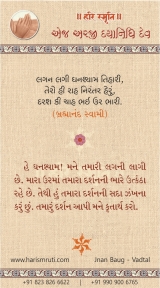 ॥ હરિ સ્મૃતિ ॥
એજ અરજી દયાનિધિ દેવ
લગન લગી ઘનશ્યામ તિહારી,
તેરો હી રાહ નિરંતર હેરું,
દરશ કી ચાહ ભઈ ઉર ભારી.
(બ્રહ્માનંદ સ્વામી)
હે ઘનશ્યામ! મને તમારી લગની લાગી
છે. મારા ઉરમાં તમારા દર્શનની ભારે ઉત્કંઠા
રહે છે. તેથી હું તમારા દર્શનની સદા ઝંખના
કરું છું. તમારું દર્શન આપી મને કૃતાર્થ કરો.
www.harismruti.com Jnan Baug - Vadtal
+91 823 826 6622 +91 990 900 6765